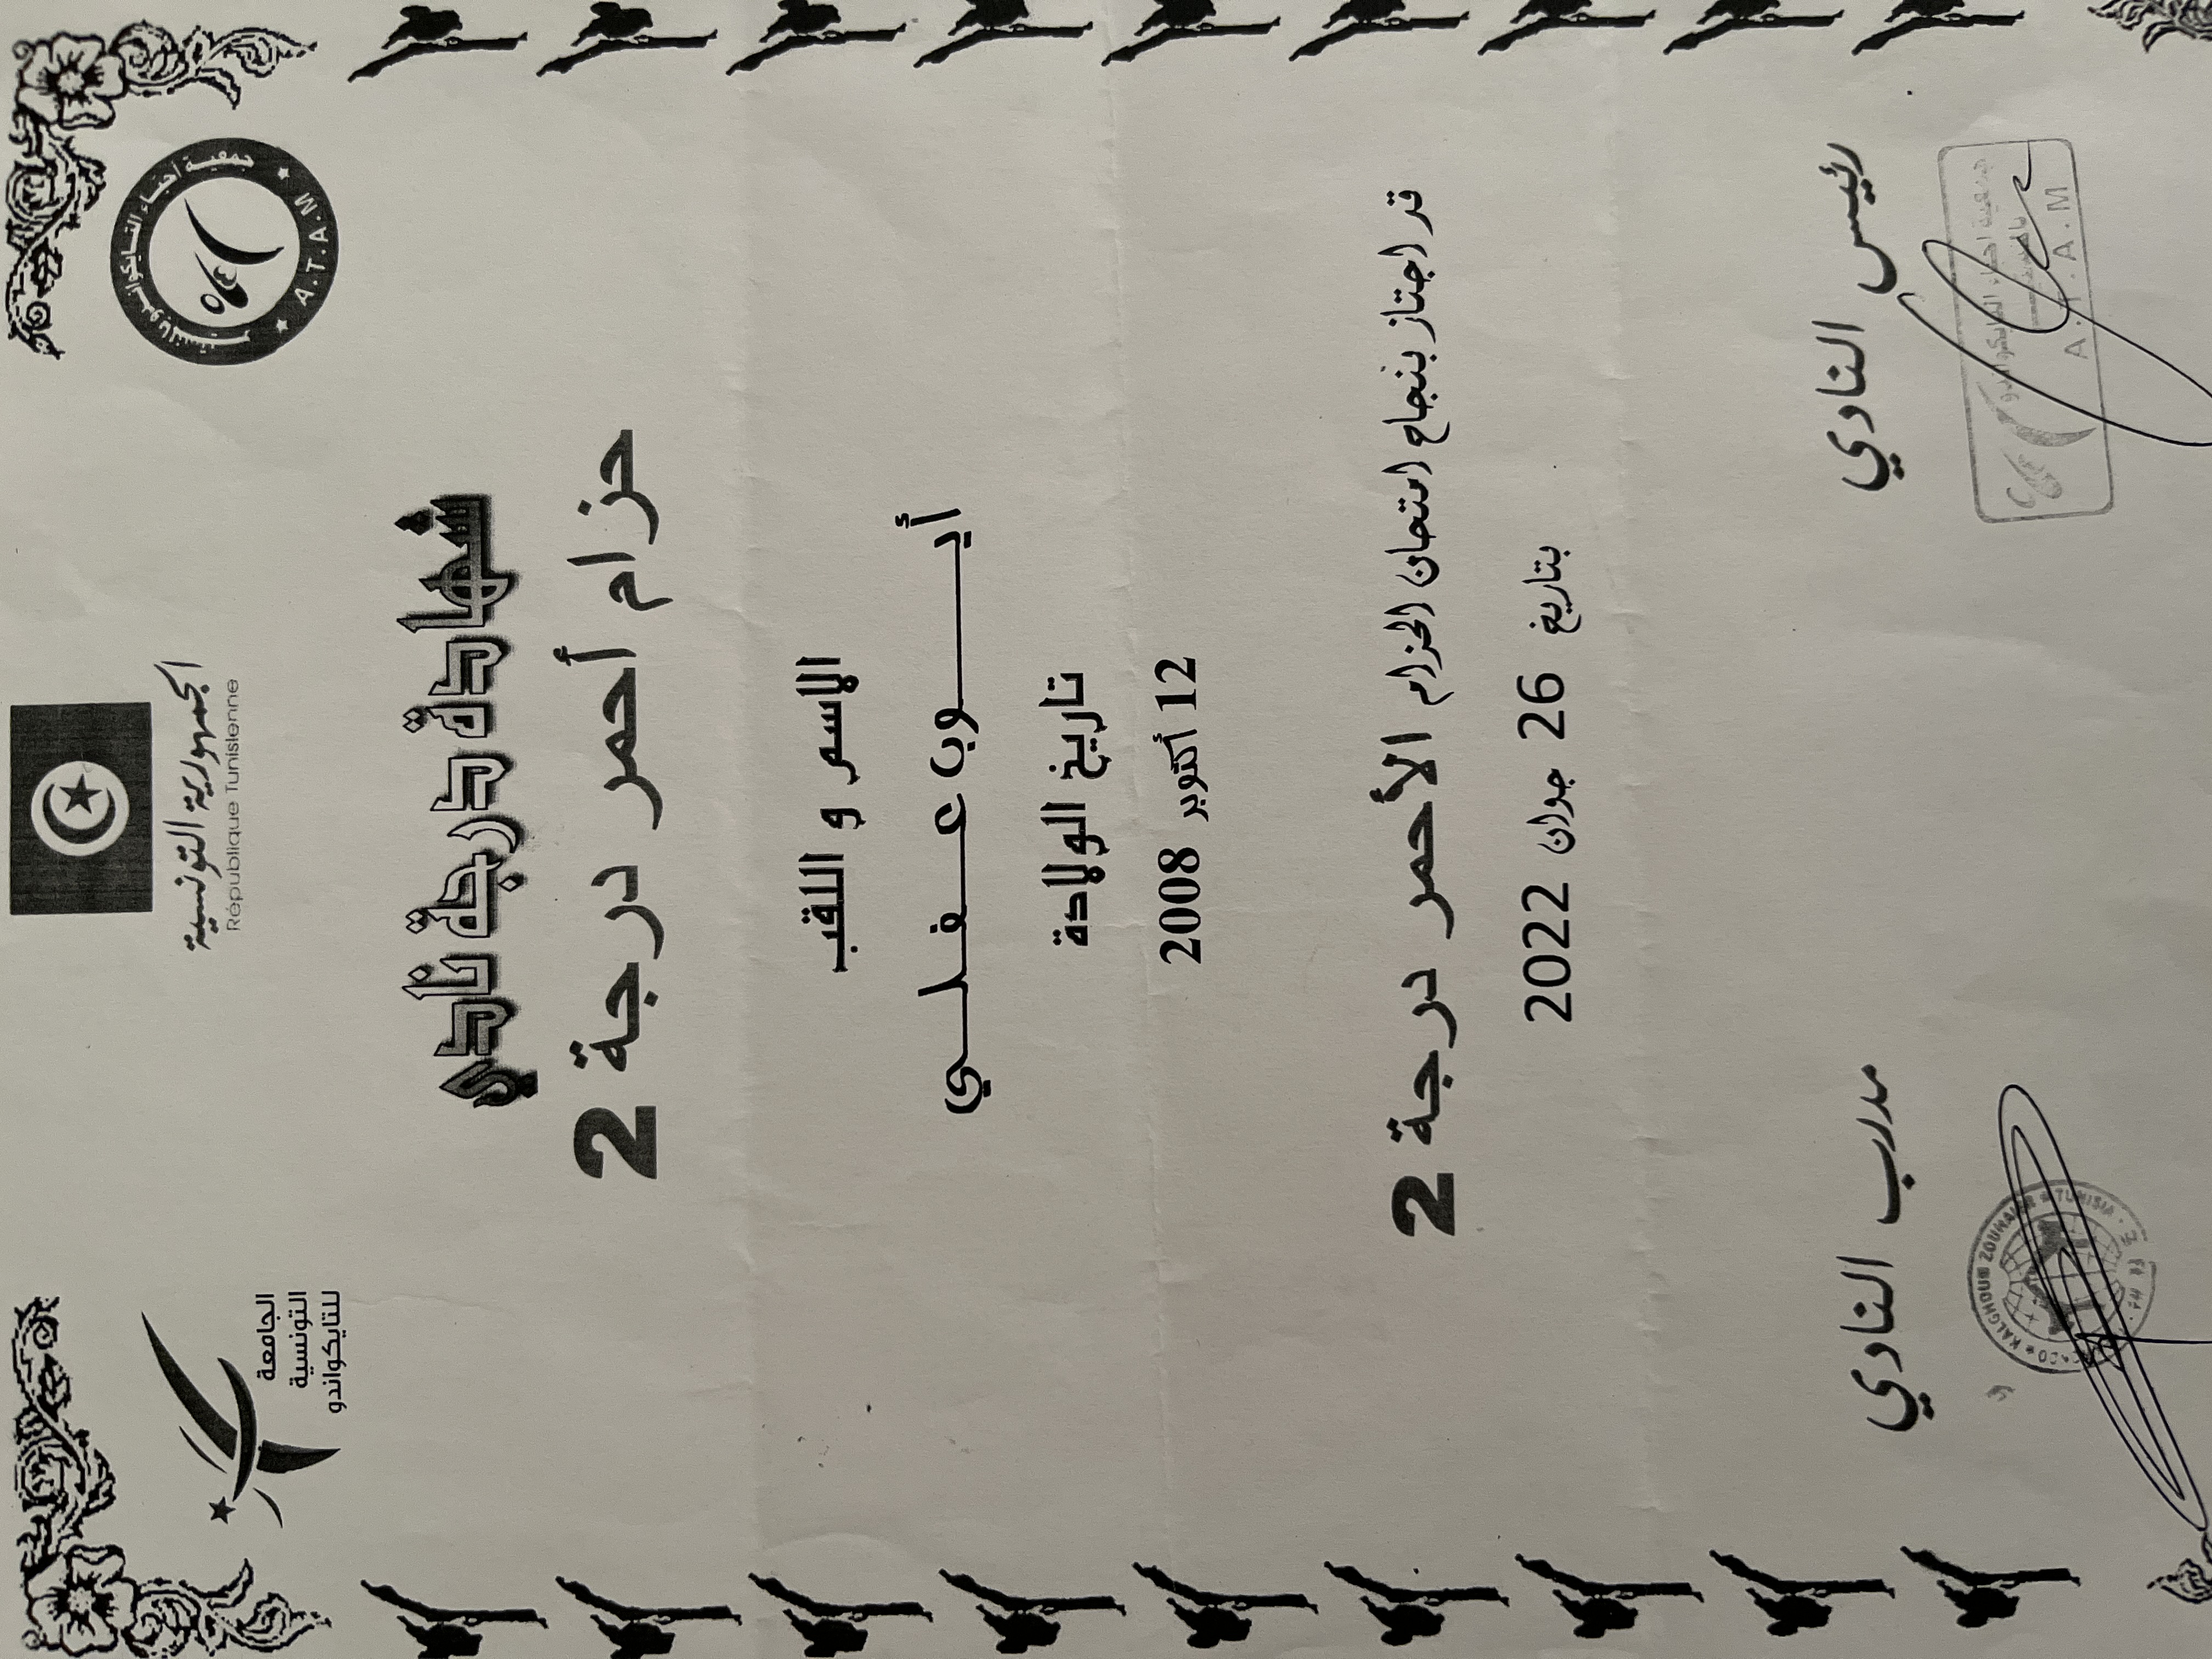 الجمهورية التونسية
République Tunisienne
الجامعة
التونسية
للتايكواندو
جمعية احباء التايكواندو بالمنستير
A.T.A.M
شهادة درجة نادي
حزام أحمر درجة 2
الاسم و اللقب
أيـــــوب عـــفـــلـــي
تاريخ الولادة
12 أكتوبر 2008
قد اجتاز بنجاح امتحان الحزام الأحمر درجة 2
بتاريخ 26 جوان 2022
رئيس النادي
جمعية احباء التايكواندو
A.T.A.M
مدرب النادي
KALGHOUM ZOUHAIER ★ TUNISIA